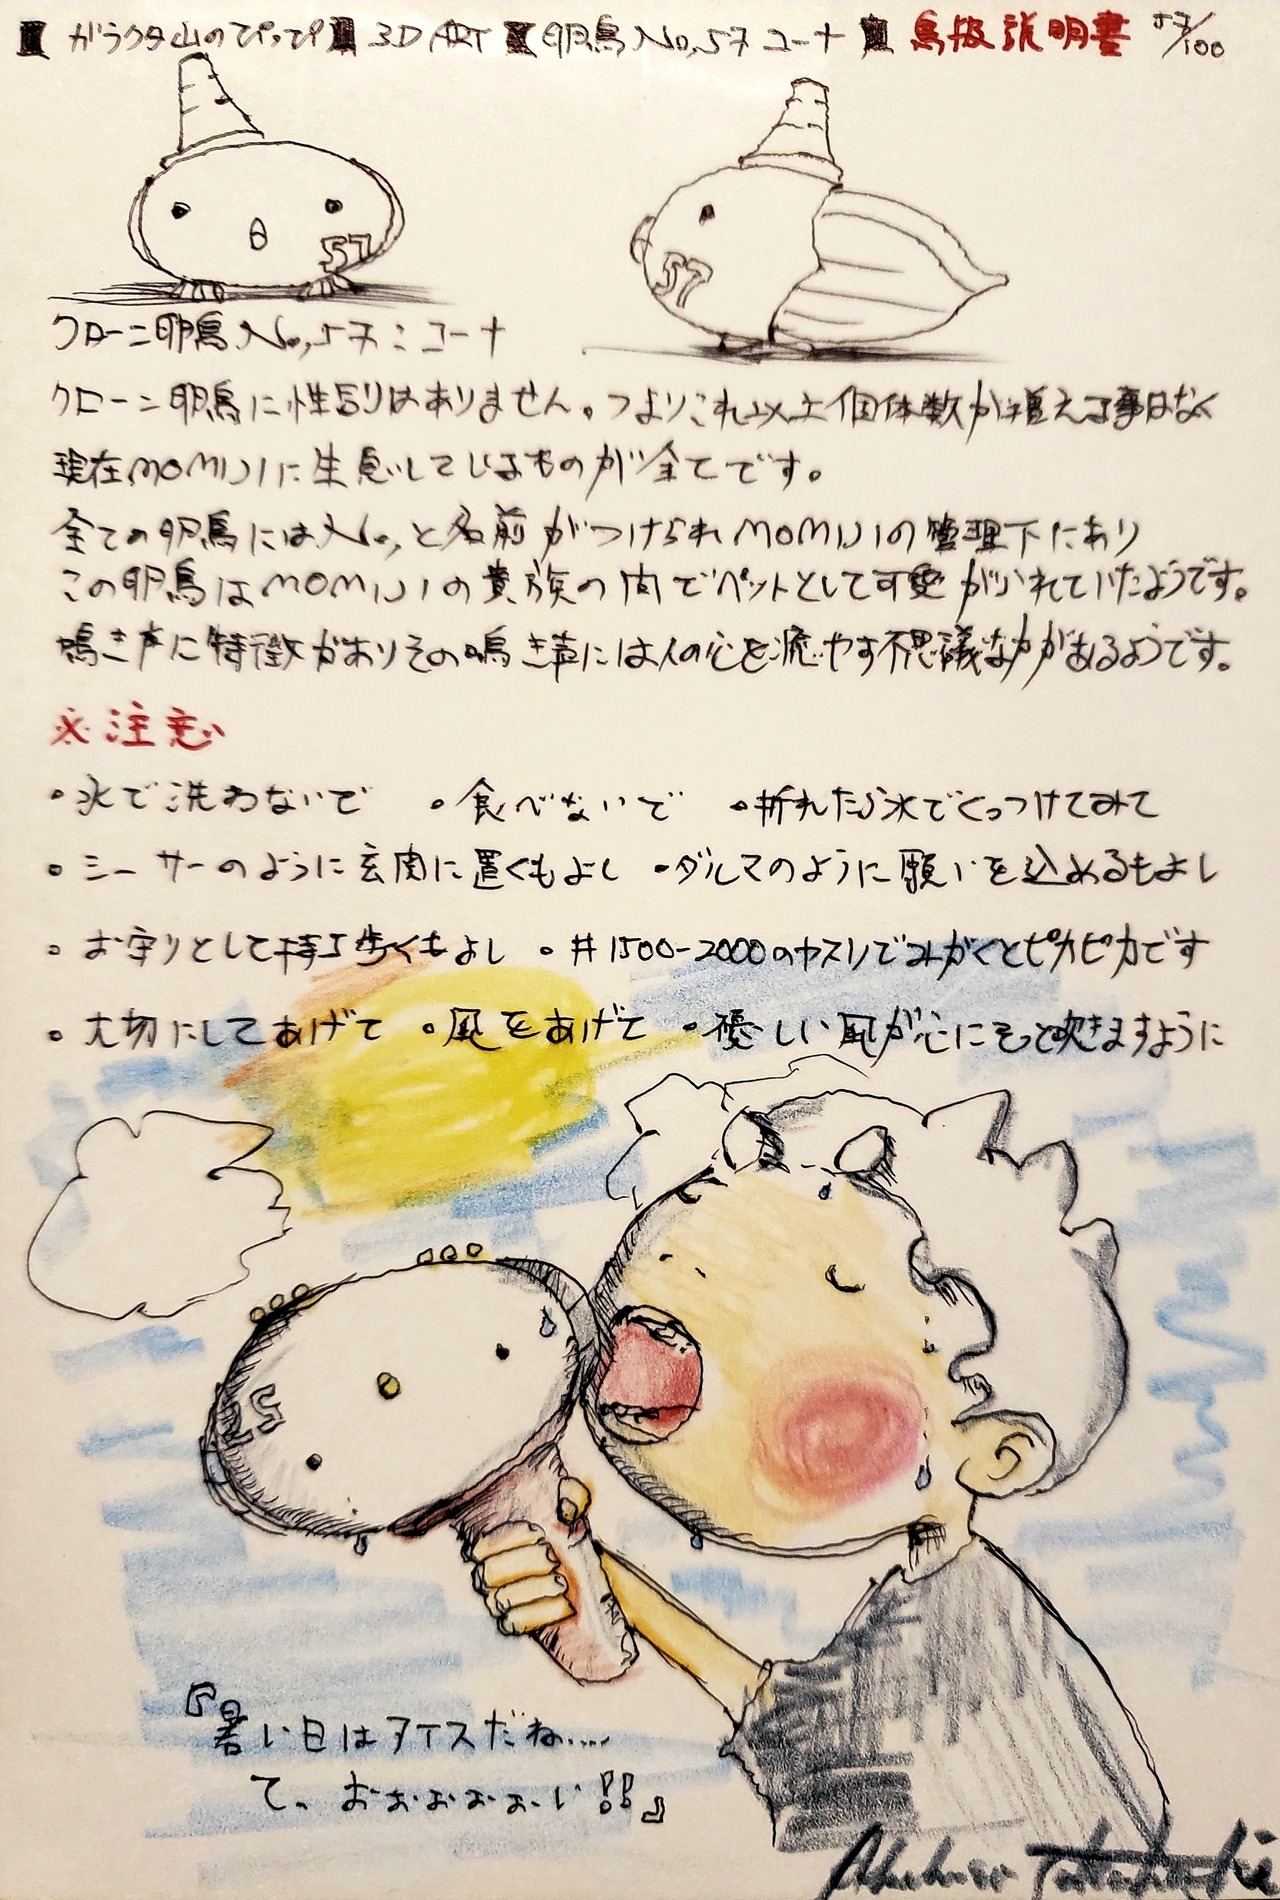 ガラクタ山のぴっぴ 3D ART 卵鳥 No,57 コーナ 鳥扱説明書 57/100
57
57
クローン卵鳥 No,57:コーナ
クローン卵鳥に性別はありません。つまりこれ以上個体数が増える事はなく
現在MOMIJIに生息しているものが全てです。
全ての卵鳥にはNo,と名前がつけられMOMIJIの管理下にあり
この卵鳥はMOMIJIの貴族の間でペットとして可愛がられていたようです。
鳴き声に特徴がありその鳴き声には人の心を癒やす不思議な力があるようです。
※注意
・水で洗わないで ・食べないで ・折れたら水でくっつけてみて
・シーサーのように玄関に置くもよし ・ダルマのように願いを込めるもよし
・お守りとして持ち歩くもよし ・#1500-2000のヤスリでみがくとピカピカです
・大切にしてあげて ・風をあげて ・優しい風が心にそっと吹きますように
『暑い日はアイスだね....
て、おぉぉぉぉ、い!!』